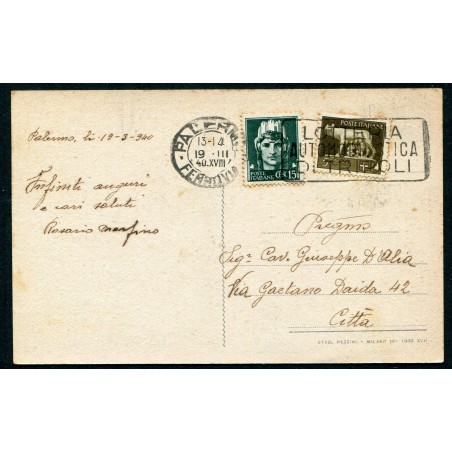 Palermo, li 19-3-940
Infiniti auguri
e cari saluti
Rosario
PALERMO
FERROVIA
13-14
19 III
40.XVIII
POSTE
ITALIANE
CT. 15
POSTE ITALIANE
LOTTERIA
AUTOMOBILISTICA
DI TRIPOLI
Pregmo
Sigr Cav. Giuseppe D'Alia
Via Gaetano Daida 42
Città